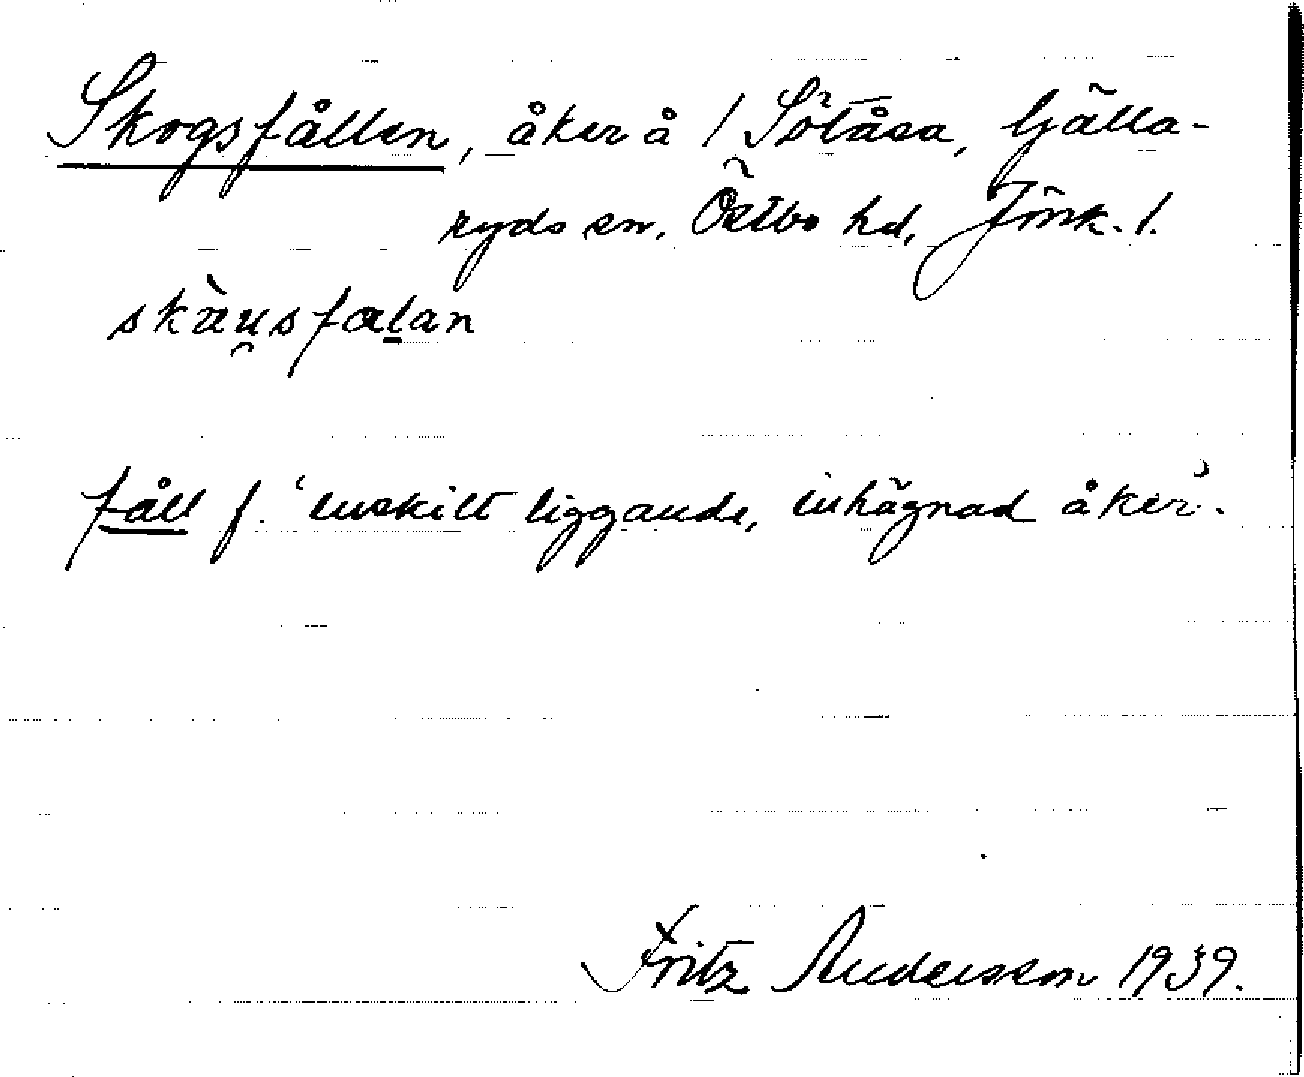 Skogsfållen, åker å / Sötåsa, Gjälla-
ryds sn, Östbo hd, Jönk. l.
skàu̯sfał̱an
fåll f. 'enskilt liggande, inhägnad åker'.
Fritz Andersson 1939.